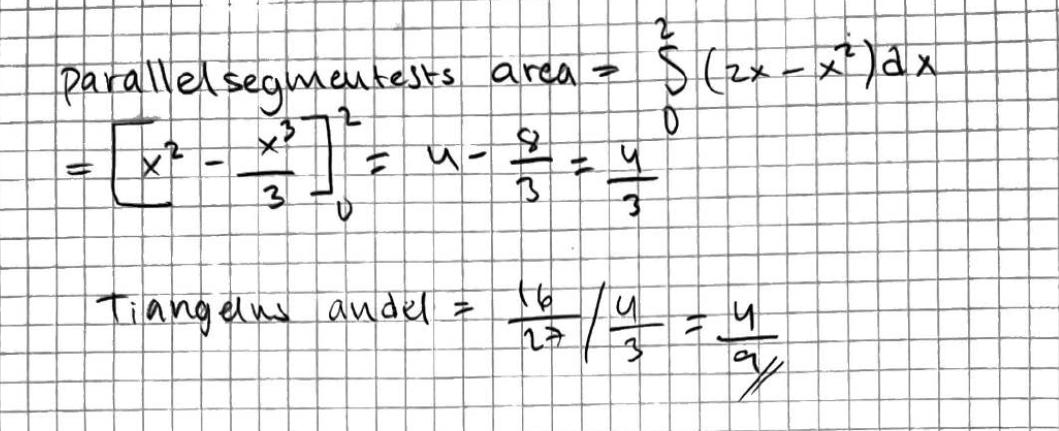 parallelsegmentests area = ∫₀² (2x - x²) dx
= [x² - x³/3]₀² = 4 - 8/3 = 4/3
Tiangelns andel = 16/27 / 4/3 = 4/9